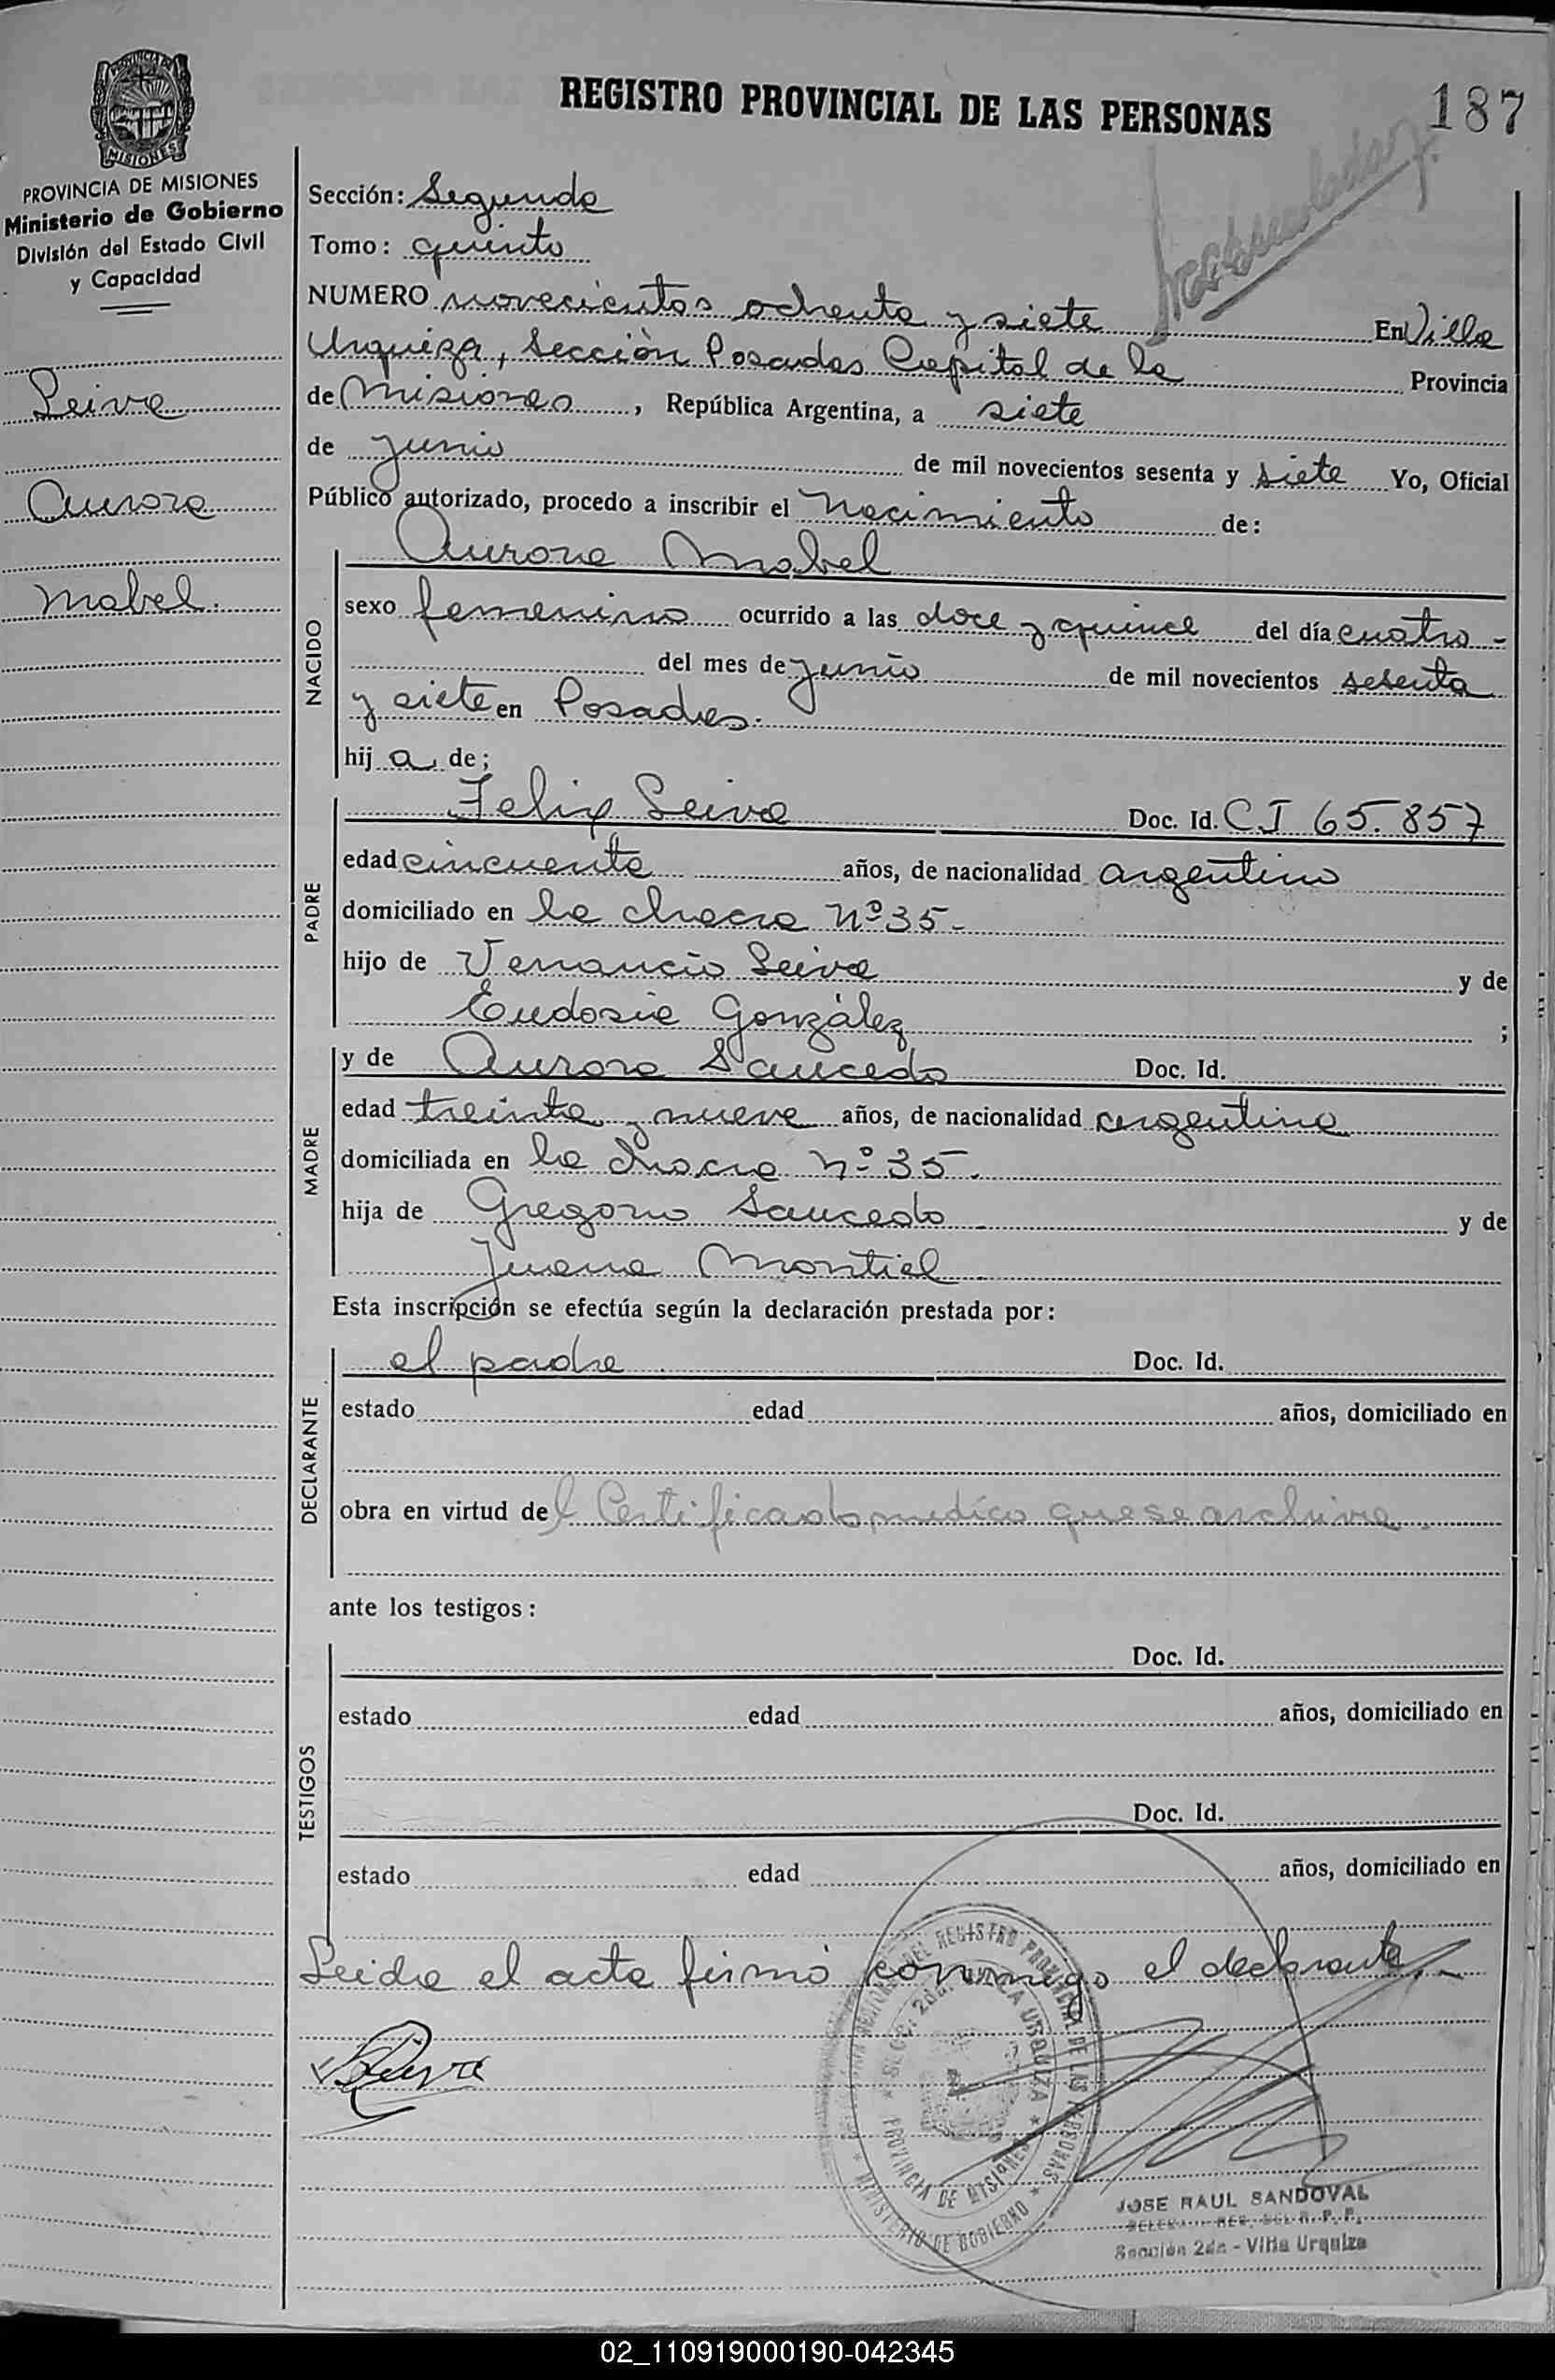 REGISTRO PROVINCIAL DE LAS PERSONAS
187
MISIONES
PROVINCIA DE MISIONES
Ministerio de Gobierno
División del Estado Civil
y Capacidad
Leiva
Aurora
Mabel.
Sección: Segunda
Tomo: quinto
NUMERO novecientos ochenta y siete En Villa
Urquiza, Sección Posadas Capital de la Provincia
de Misiones, República Argentina, a siete
de junio de mil novecientos sesenta y siete Yo, Oficial
Público autorizado, procedo a inscribir el Nacimiento de:
NACIDO
Aurora Mabel
sexo femenino ocurrido a las doce y quince del día cuatro -
del mes de junio de mil novecientos sesenta
y siete en Posadas.
hij a de;
PADRE
Felix Leiva Doc. Id. C I 65.857
edad cincuenta años, de nacionalidad argentino
domiciliado en la chacra Nº 35-
hijo de Venancio Leiva y de
Eudosia González ;
MADRE
y de Aurora Saucedo Doc. Id.
edad treinta y nueve años, de nacionalidad argentina
domiciliada en la chacra nº 35.
hija de Gregorio Saucedo y de
Juana Montiel
Esta inscripción se efectúa según la declaración prestada por:
DECLARANTE
el padre Doc. Id.
estado edad años, domiciliado en
obra en virtud del Certificado medico que se archiva.
ante los testigos:
TESTIGOS
Doc. Id.
estado edad años, domiciliado en
Doc. Id.
estado edad años, domiciliado en
Leida el acta firmó conmigo el declarante.-
Leiva
DEL REGISTRO PROVINCIAL DE LAS PERSONAS
MINISTERIO DE GOBIERNO
PROVINCIA DE MISIONES
JOSE RAUL SANDOVAL
Sección 2da - Villa Urquiza
02_110919000190-042345